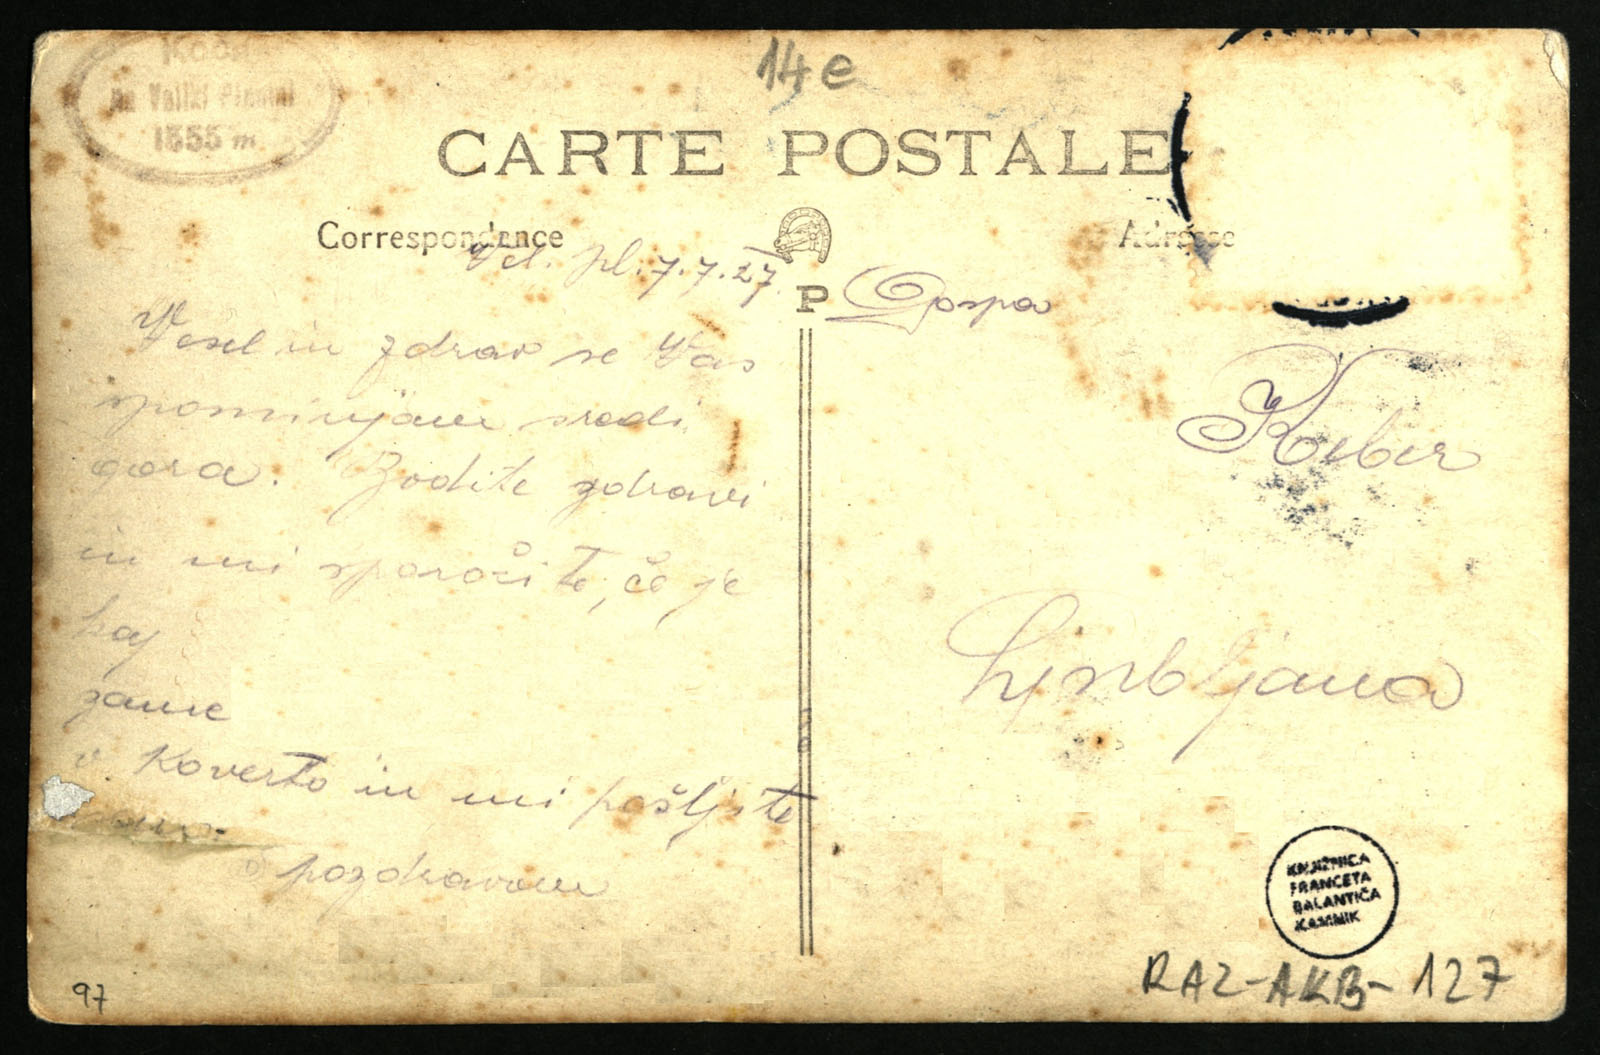 Koča
na Veliki Planini
1555 m
14 e
CARTE POSTALE
Correspondance
Adresse
Vel. pl. 7.7.27.
P
Gospa
Vesel in zdrav se Vas
spominjam sredi
gora. Bodite zdravi
in mi sporočite, če je
kaj
zame
v koverto in mi pošljite
pozdravom
Keber
Ljubljana
KNJIŽNICA
FRANCETA
BALANTIČA
KAMNIK
RAZ-AKB-127
97